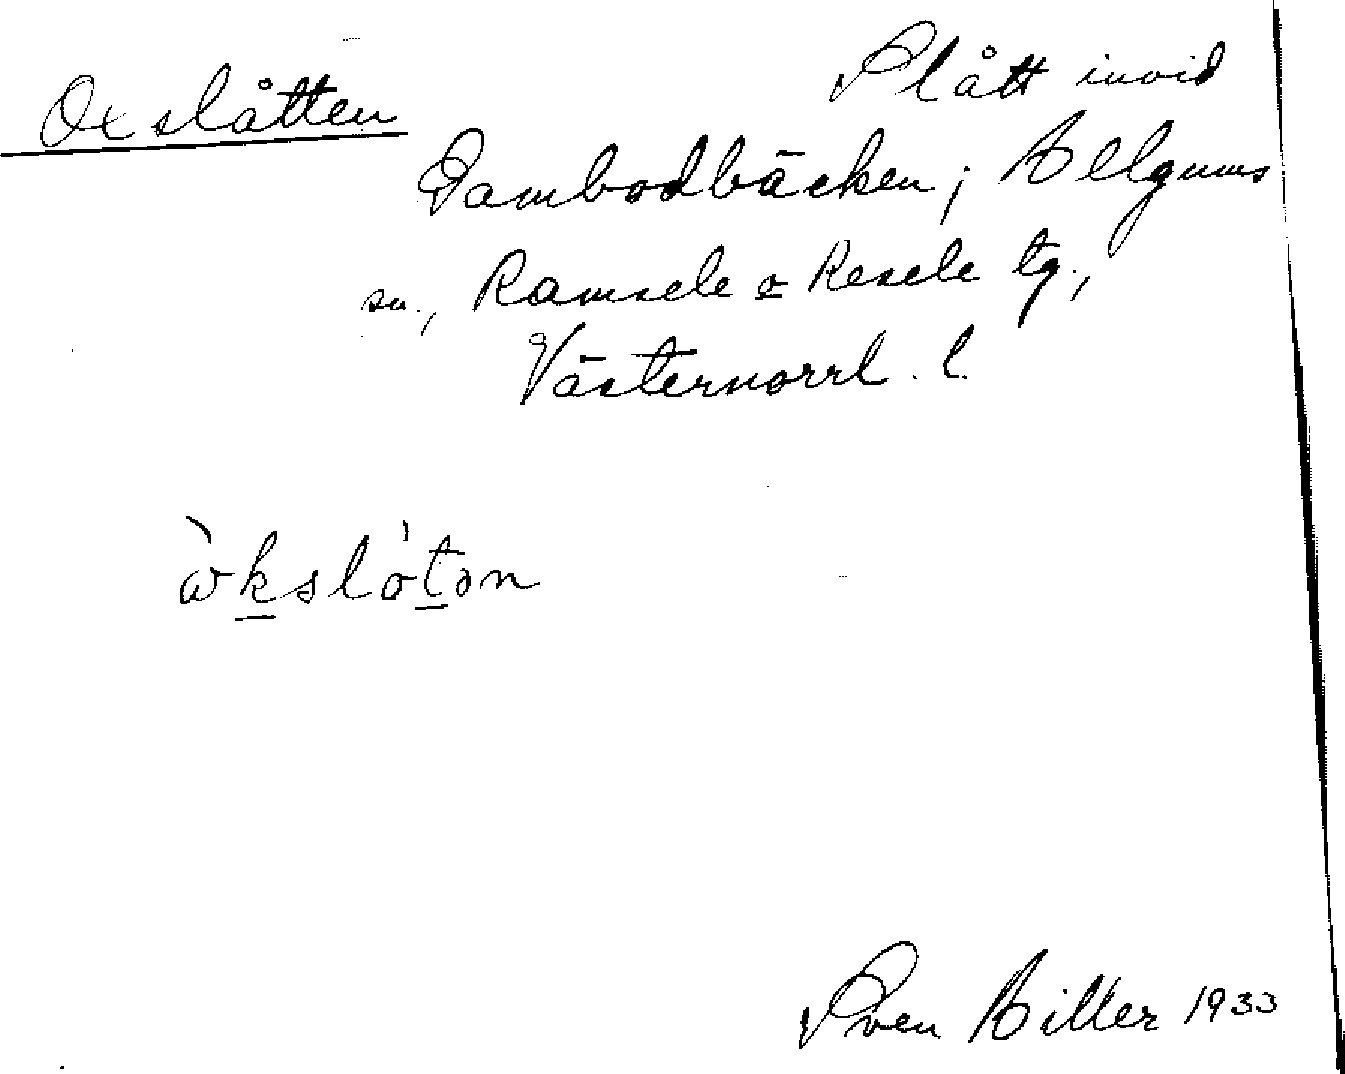 Oxslåtten
Slått invid
Dambodbäcken; Helgums
sn., Ramsele o Resele tg.,
Västernorrl. l.
ὼkslo̍tən
Sven Hiller 1933